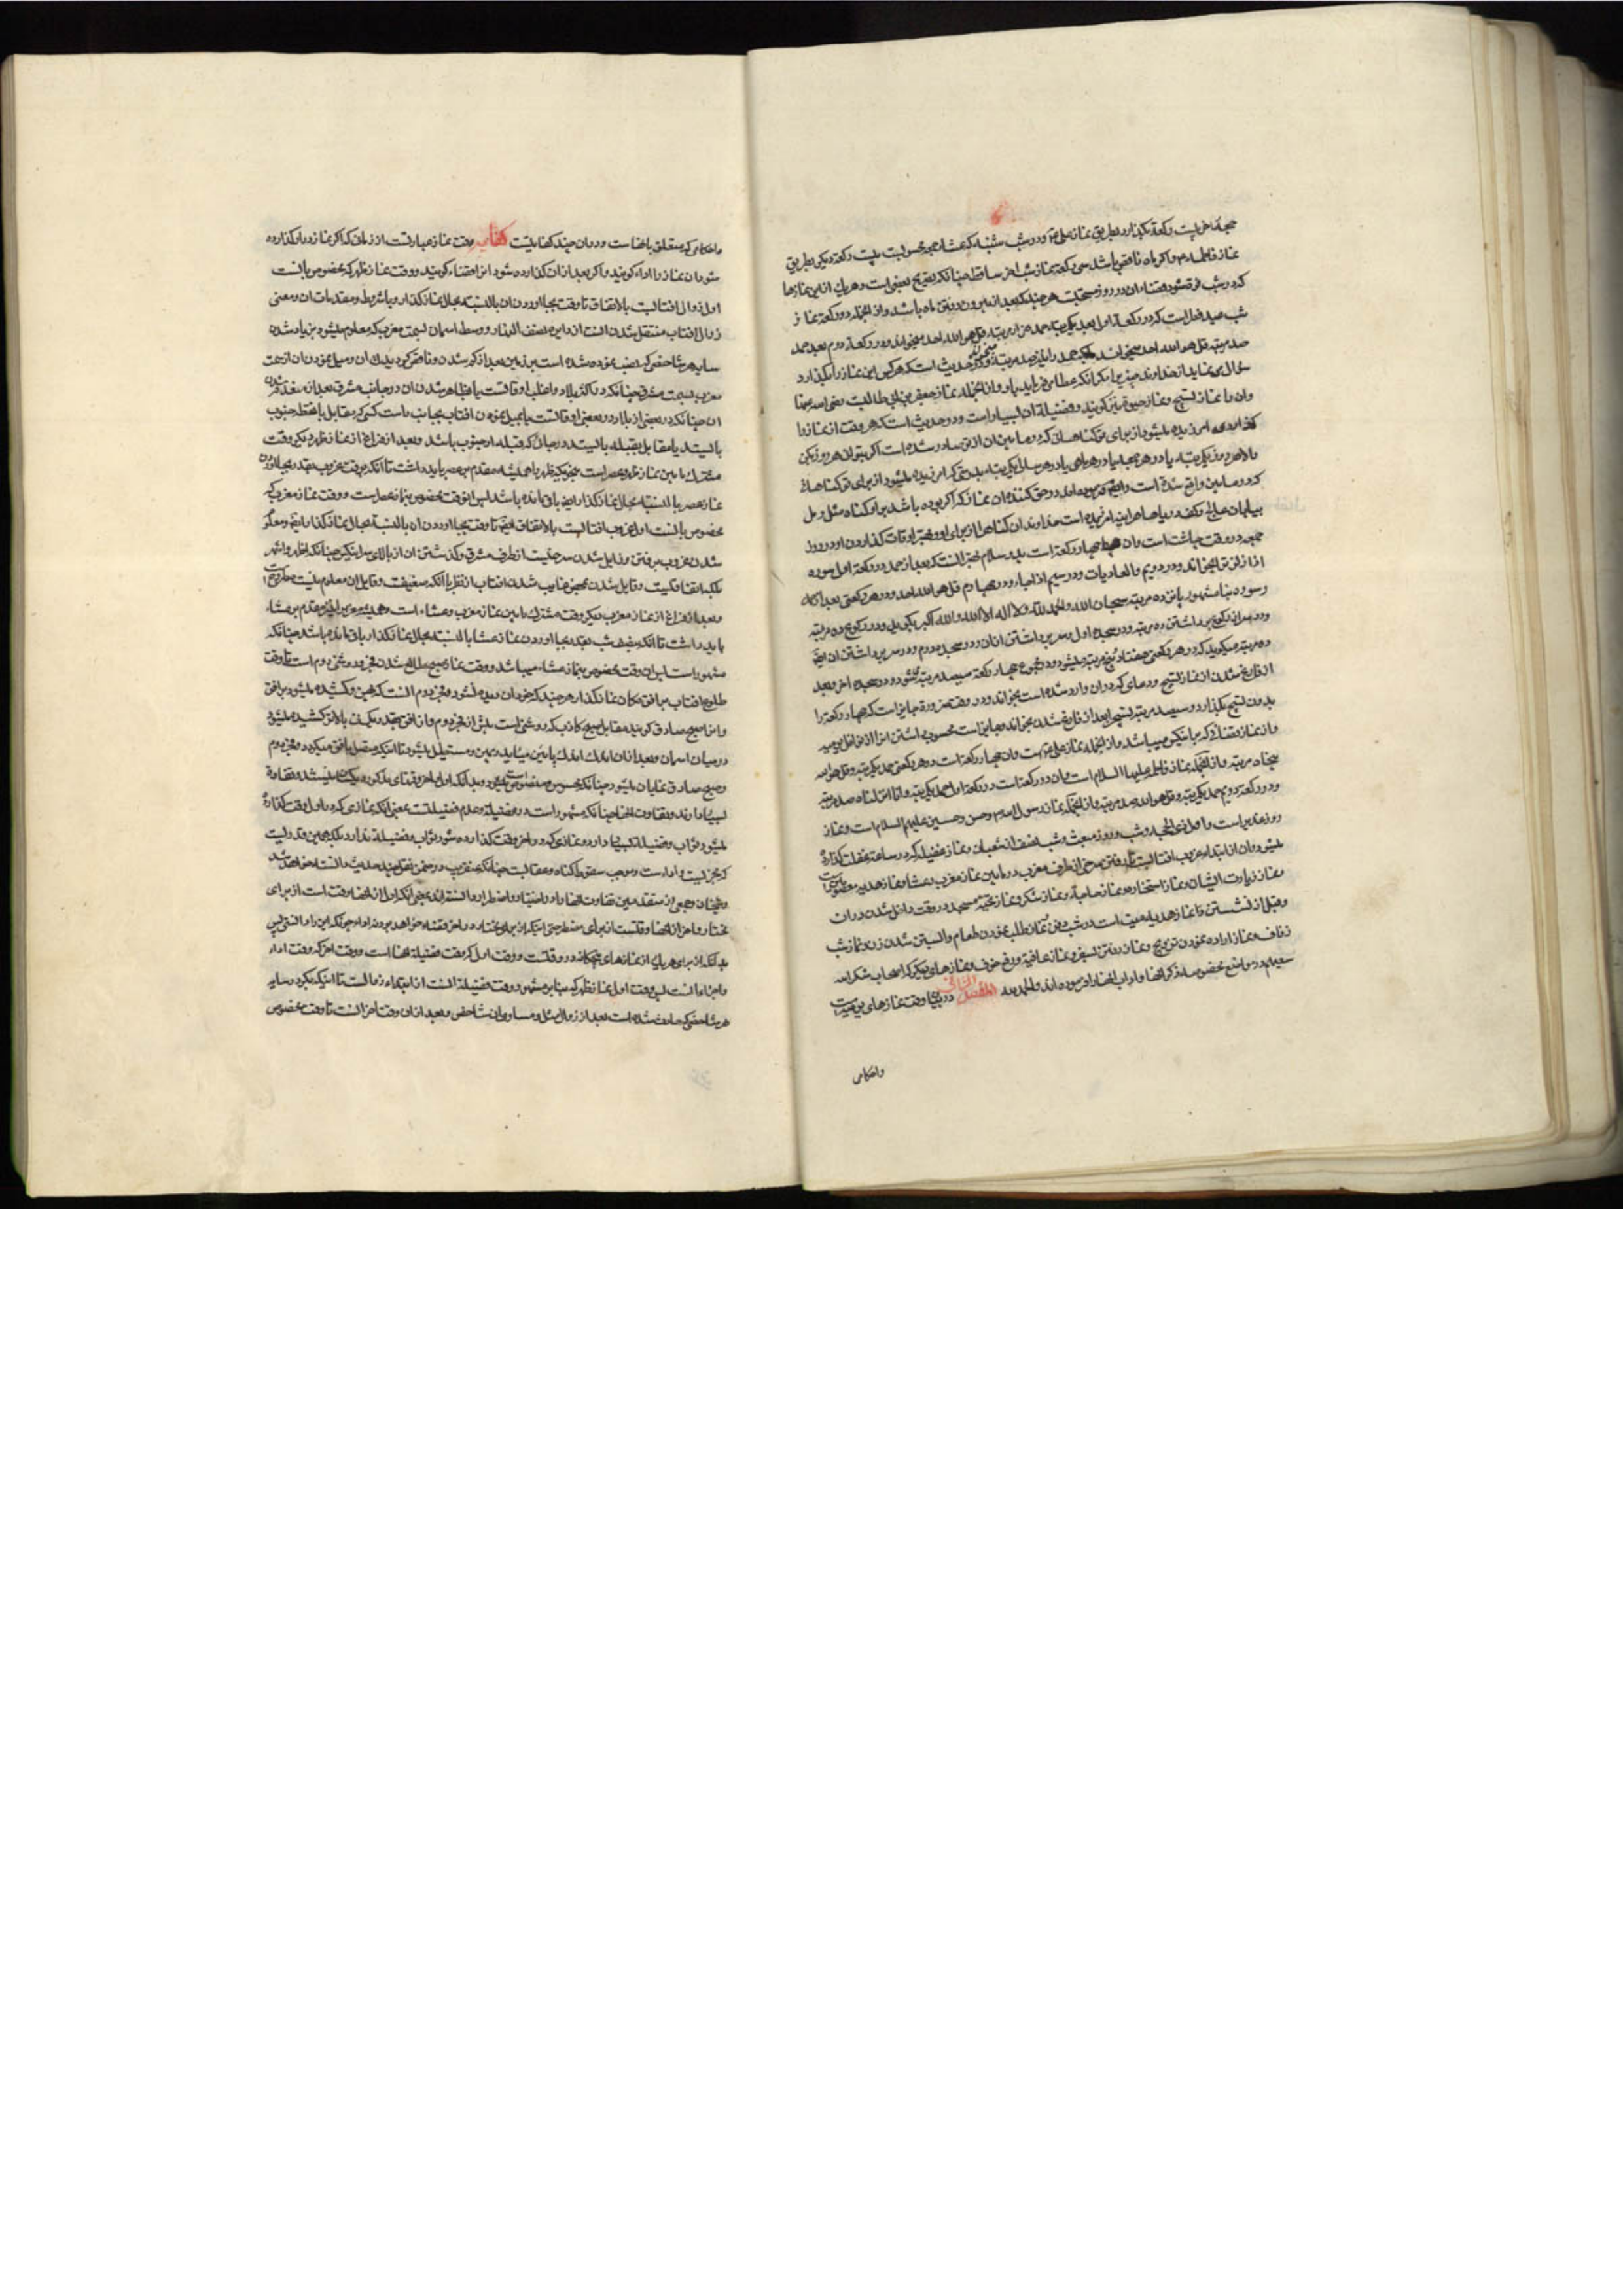 جمعه آخر بیست رکعة بگذارد بطریق نماز علی ۴ و در شب شنبه که عشاء جمعه محسوبست بیست رکعة دیگر بطریق
نماز فاطمه ۴ و اگر ماه ناقص باشد سی رکعة نماز شب آخر ساقط چنانکه تصریح بعضی است و هر یک از این نمازها
که در شب فوت شود قضاء آن در روز مستحبست هر چند که بعد از بیرون رفتن ماه باشد و از آنجمله دو رکعة نماز
شب عید فطر است که در رکعة اول بعد یکمرتبه حمد هزار مرتبه قل هو الله احد میخواند و در رکعة دوم بعد حمد
مرتبه قل هو الله احد میخواند حدیث است که هر کس این نماز را بگذارد
سؤال نمی نماید از خداوند چیزی را مگر آنکه عطا می فرماید باو و از آنجمله نماز جعفر بن ابی طالبست رضی الله عنهما
و آن را نماز تسبیح و نماز حبوة نیز کویند و فضیلة آن بسیار است و در حدیث است که هر وقت این نماز را
گذاردی آمرزیده میشود از برای تو گناهانی که در مابین آن از تو صادر شده است اگر بتوانی هر روز بکن
والا هر دو روز یکمرتبه یا در هر جمعه یا در هر ماهی یا در هر سالی یکمرتبه بدرستی که آمرزیده میشود از برای تو گناهان
که در مابین واقع شده است و ایضا فرموده اند در حق کننده این نماز که اگر بوده باشد بر او گناه مثل رمل
بیابان عالج و کف دریاها هر آینه آمرزیده است خداوند آن گناهان را از برای او و بهتر اوقات گذاردن او در روز
جمعه در وقت چاشت است و آن چهار رکعة است بدو سلام بهتر آنست که بعد از حمد در رکعة اول سوره
اذا زلزلت بخواند و در دویم والعادیات و در سیم اذا جاء و در چهارم قل هو الله احد و در هر رکعتی بعد از حمد
و سوره بنا بمشهور پانزده مرتبه سبحان الله والحمد لله ولا اله الا الله والله اکبر بگوید و در رکوع ده مرتبه
و در سر از رکوع برداشتن ده مرتبه و در سجده اول و سر برداشتن از آن و در سجده دوم و در سر برداشتن از آن ایضا
ده مرتبه میگوید که در هر رکعتی هفتاد و پنج مرتبه میشود و در مجموع چهار رکعة سیصد مرتبه میشود و در سجده آخر و بعد
از فارغ شدن از نماز تسبیح دعای که در آن وارد شده است بخواند و در وقت ضرورة جایز است که چهار رکعة را
بدون تسبیح بگذارد و سیصد مرتبه تسبیح را بعد از فارغ شدن بخواند و جایز است محسوب داشتن آنرا از نوافل یومیه
و از نماز قضا و از آنجمله نماز علی ۴ است و آن چهار رکعة است در هر رکعتی حمد یکمرتبه و قل هو الله
پنجاه مرتبه و از آنجمله نماز فاطمه علیها السلام است و آن دو رکعة است در رکعة اول حمد یکمرتبه و انا انزلناه صد مرتبه
و در رکعة دویم حمد یکمرتبه و قل هو الله صد مرتبه و از آنجمله نماز رسول ۴ و حسن و حسین علیهم السلام است و نماز
روز غدیر است و اول ذی الحجه و شب و روز مبعث و شب نصف از شعبان و نماز غفیله که در ساعة غفلت گذارده
میشود و آن از ابتداء غروب آفتابست تا رفتن سرخی از طرف مغرب در مابین نماز مغرب و عشا و نماز هدیه معصومین
و نماز زیارت ایشان و نماز استخاره و نماز حاجة و نماز شکر و نماز تحیة مسجد در وقت داخل شدن در آن
و قبل از نشستن و نماز هدیه میت است در شب دفن و نماز طلب نمودن طعام و آبستن شدن زن و نماز شب
زفاف و نماز اراده نمودن تزویج و نماز رفتن بسفر و نماز عافیة و رفع خوف و نمازهای دیگر که اصحاب شکر الله
سعیهم در مواضع مخصوصه ذکر آنها و آداب آنها را فرموده اند والحمد لله المقصد الثانی در بیان وقت نمازهای یومیه است
واحکامی
واحکامی که متعلق بآنها است و در آن چند کفایتست کفایة وقت نماز عبارتست از زمانی که اگر نماز در او گذارده
شود آن نماز را اداء کویند و اگر بعد از آن گذارده شود آنرا قضاء کویند و وقت نماز ظهر که مخصوص بآنست
اول زوال آفتابست بالاتفاق تا وقت بجا آوردن آن بالنسبة بحال نماز گذار و با شروط و مقدمات آن و معنی
زوال آفتاب منتقل شدن آنست از دایره نصف النهار و وسط آسمان بسمت مغرب که معلوم میشود بزیاد شدن
سایه هر شاخصی که نصب نموده شده است بر زمین بعد از کم شدن و ناقص گردیدن آن و میل نمودن آن از جهت
مغرب بسمت مشرق چنانکه در اکثر بلاد و اغلب اوقاتست یا ظاهر شدن آن در جانب مشرق بعد از معدوم شدن
آن چنانکه در بعضی از بلاد و بعضی اوقاتست یا بمیل نمودن آفتاب بجانب راست کسی که مقابل با نقطه جنوب
بایستد یا مقابل بقبله بایستد در جائی که قبله او جنوب باشد و بعد از فراغ از نماز ظهر دیگر وقت
مشترک مابین نماز ظهر و عصر است بنحویکه ظهر را همیشه مقدم بر عصر باید داشت تا آنکه بوقت غروب بقدر بجا آوردن
نماز عصر بالنسبة بحال نماز گذار باقی مانده باشد پس آنوقت مخصوص بنماز عصر است و وقت نماز مغرب که
مخصوص بآنست اول غروب آفتابست بالاتفاق ایضا تا وقت بجا آوردن آن بالنسبة بحال نماز گذار ایضا و معلوم
شدن غروب برفتن و زایل شدن سرخیست از طرف مشرق و گذشتن آن از بالای سر اینکس چنانکه اظهر و اشهر
بلکه اتفاقیست و قایل شدن بمحض غایب شدن آفتاب از نظر با آنکه ضعیفست و قایل آن معلوم نیست
و بعد از فراغ از نماز مغرب دیگر وقت مشترک مابین نماز مغرب و عشاء است و همیشه مغرب را نیز مقدم بر عشاء
باید داشت تا آنکه بنصف شب بقدر بجا آوردن نماز عشا بالنسبة بحال نماز گذار باقی مانده باشد چنانکه
مشهور است پس این وقت مخصوص بنماز عشاء میباشد و وقت نماز صبح طالع شدن فجر و روشنی دوم است تا وقت
طلوع آفتاب بر افق مکان نماز گذار هر چند که جرم آن دیده نشود و فجر دوم آنست که پهن و کشیده میشود بر افق
و آنرا صبح صادق کویند مقابل صبح کاذب که روشنی است پیش از فجر دوم و از افق بقدر یک نیزه بالاتر کشیده میشود
در میان آسمان و بعد از آن اندک اندک پائین میآید و پهن و مستطیل میشود تا اینکه متصل بافق میگردد و فجر دوم
و صبح صادق نمایان میشود چنانکه محسوس و منصوص است و بدانکه اول و آخر وقتهای مذکوره یکسان نیستند و تفاوة
بسیار دارند و تفاوت آنها چنانکه مشهور است در فضیلة و عدم فضیلتست بمعنی آنکه نمازی که در اول وقت گذارده
میشود ثواب و فضیلة بسیار دارد و نمازی که در آخر وقت گذارده شود ثواب و فضیلة ندارد بلکه همین قدر است
که مجزیست و اداست و موجب سقوط گناه و عقابست چنانکه عنقریب در ضمن نقل چند حدیث دانسته خواهد شد
و شیخان و جمعی از متقدمین تفاوت آنها را در اختیار و اضطرار دانسته اند بمعنی آنکه اول از آنها وقت است از برای
مختار و آخر از آنها وقتست از برای مضطر حتی اینکه از برای مختار در آخر وقت قضاء خواهد بود نه اداء چونکه این را دانستی پس
بدانکه از برای هر یک از نمازهای پنجگانه دو وقتست وقت اول که وقت فضیلة آنها است و وقت آخر که وقت اداء
و اجزاء آنست پس وقت اول نماز ظهر که بنا بر مشهور وقت فضیلة آنست از ابتداء زوالست تا اینکه بگردد سایه
هر شاخصی که حادث شده است بعد از زوال مثل و مساوی آن شاخص و بعد از آن وقت آخر آنست تا وقت مخصوص